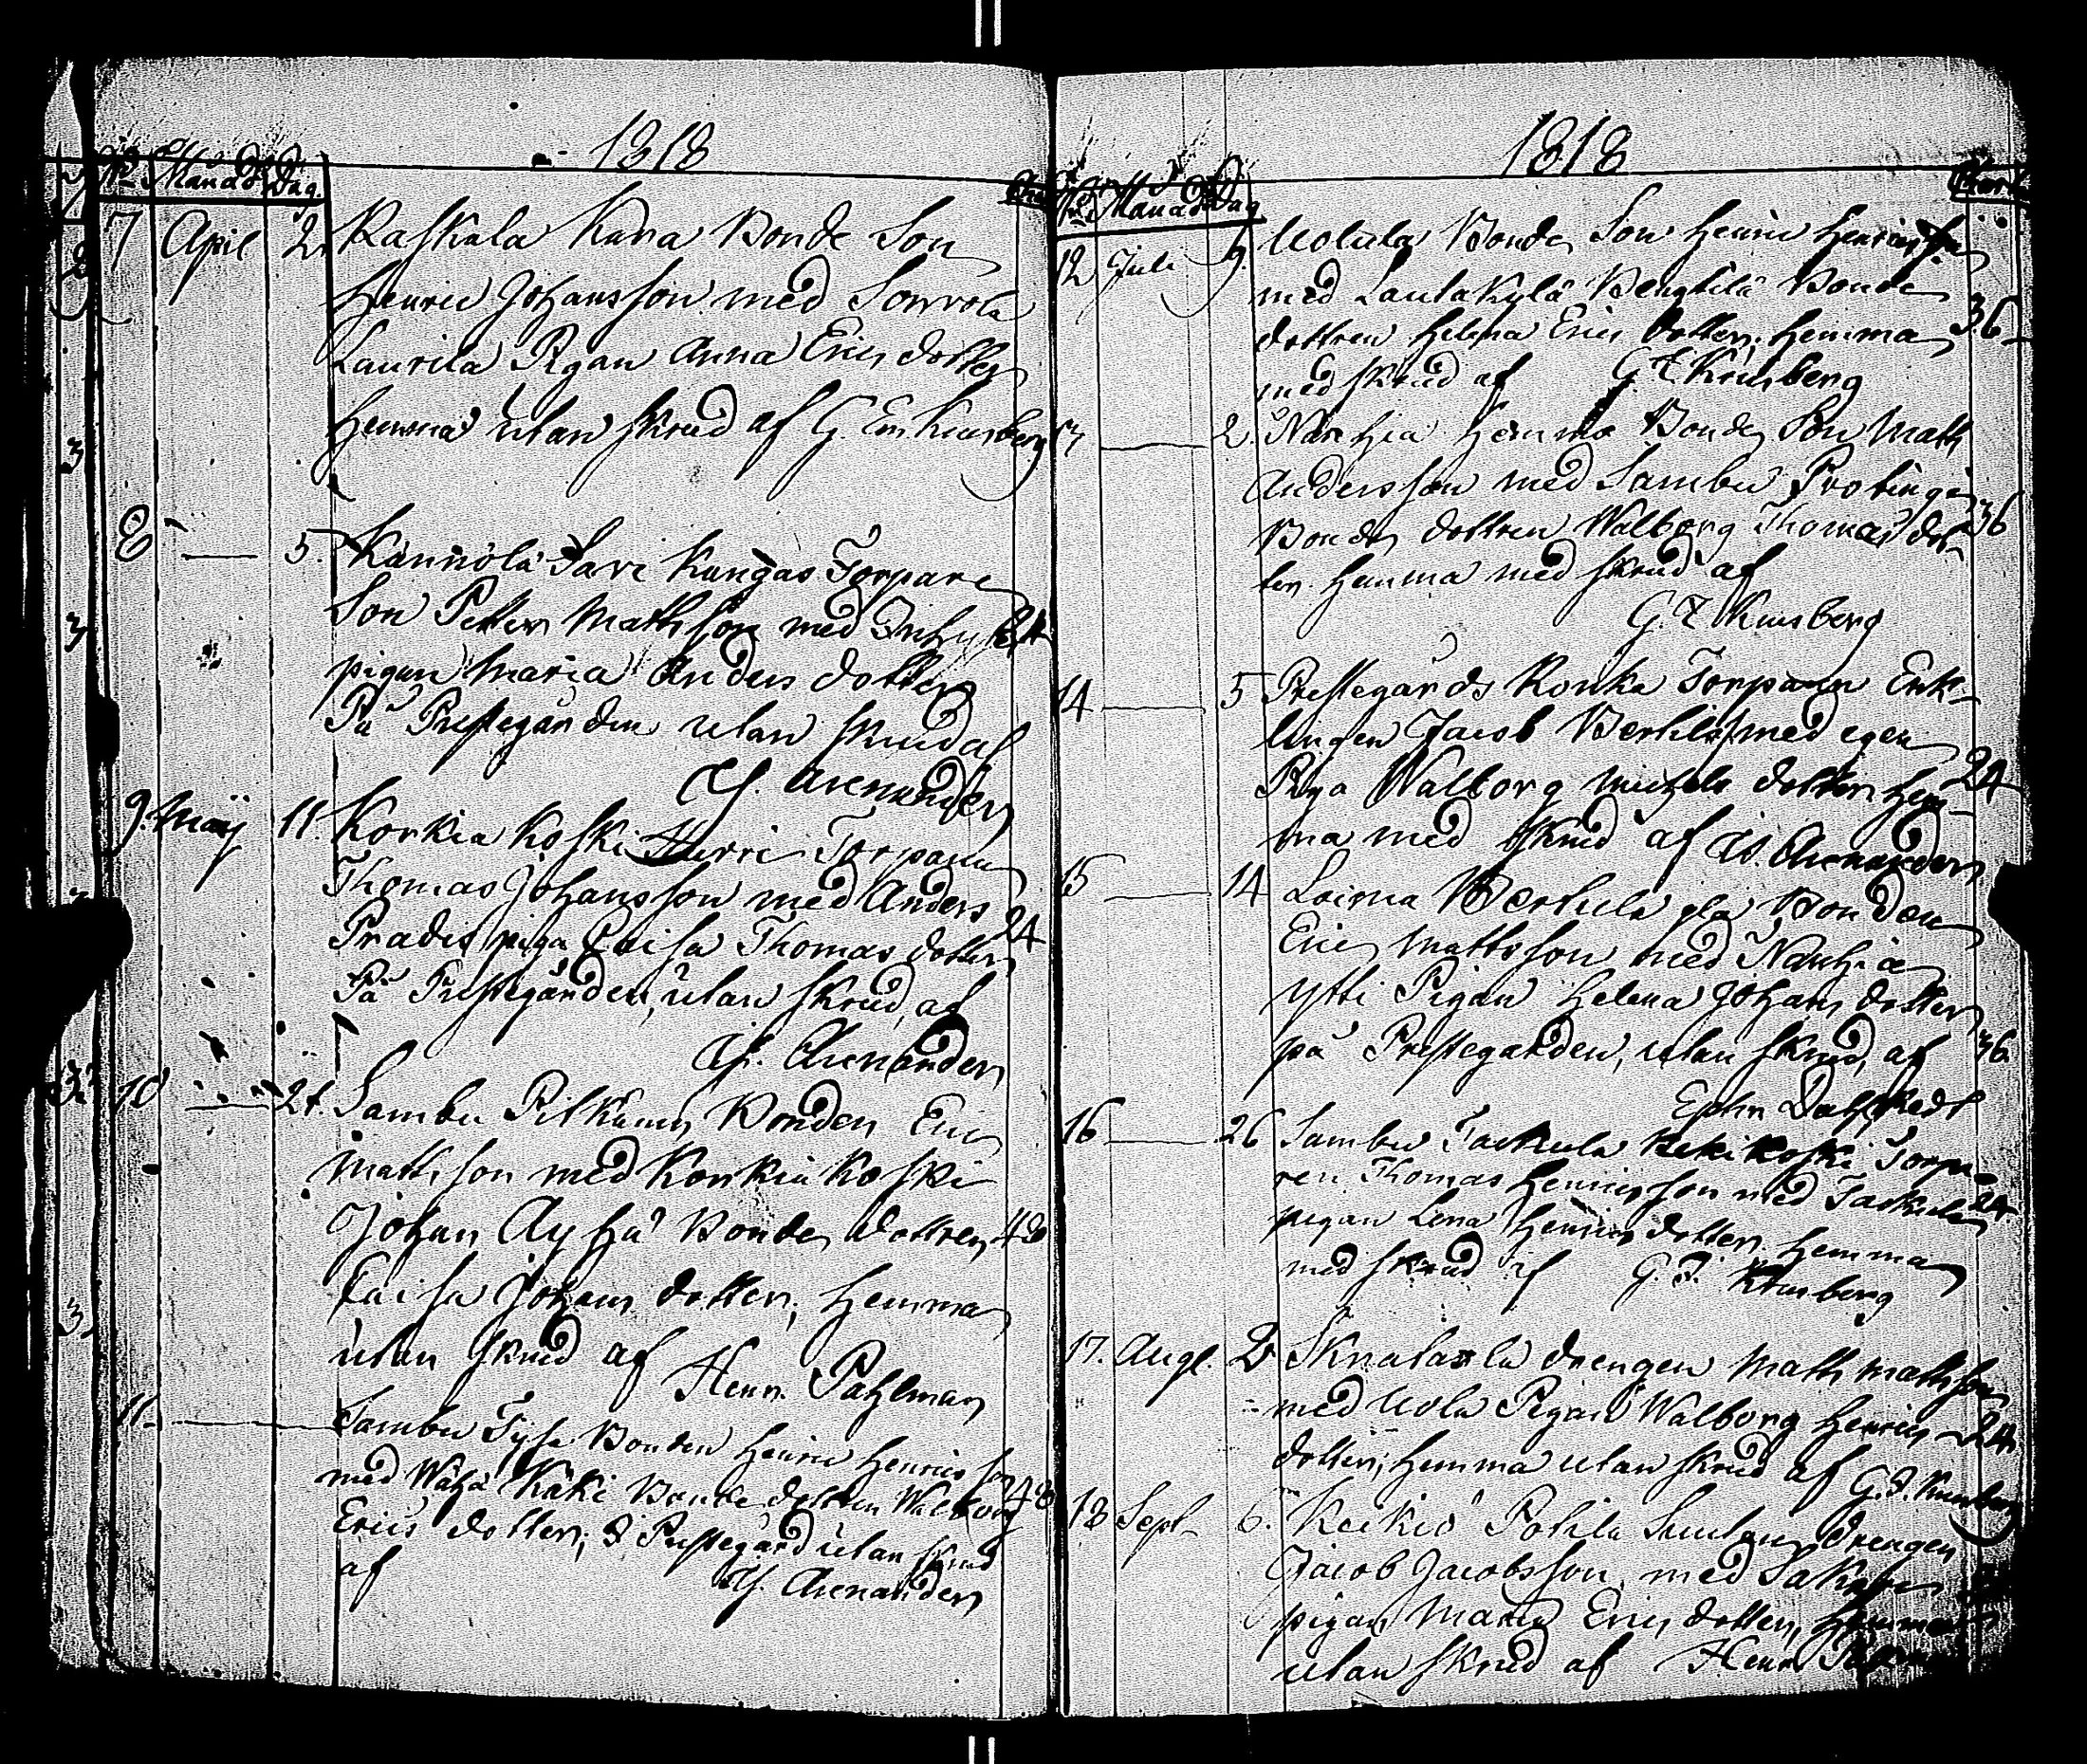 1818
No Månad Dag
7 April 2. Raskala Kara Bonde Son
Henric Johansson med Sorrola
Laurila Pigan Anna Erics dotter
hemma utan skrud af G. Em. Kumberg
8 — 5. Kännölä Sari Kangas Torpare
Son Petter Mathsson med
pigan Maria Anders dotter 24
På Prestegården utan skrud af
Arenander
9. Maij 11. Korkia Koski Hurri Torparen
Thomas Johansson med Anders
Pradis piga Caisa Thomas dotter 24
På Prestegården, utan skrud, af
Arenander
10 — 21. Sambu Pilkama Bonden Eric
Mathsson med Korkia Koski
Johan Äyhä Bonde dottren 48
Caisa Johans dotter, hemma
utan skrud af
Henr. Pahlman
11. — Sambu Bonden Henric Henricsson
med Wähä Käki Bonde dottren Walborg 48
Erics dotter; I Prestegård utan skrud
af Arenander
1818
No Månad Dag
12 Juli 9. Uotila Bonde Son Henric Henricsson
med Lautakylä Benghtilä Bonde
dottren Helena Erics dotter, hemma 36
med skrud af G. E. Kumberg
13 — 2. Nanhia Hemmo Bonde Son Math
Andersson med Sambu Protingin
Bonde dottren Walborg Thomas dot- 36
ter. hemma med skrud af
G. E. Kumberg
14. — 5 Prestegårds Ronka Torparen Enk-
lingen Jacob Bertils med egen
Piga Walborg Michels dotter hem- 24
ma med skrud af Arenander
15 — 14 Loima Bertula Bonden
Eric Mattsson med Nanhia
Ytti Pigan Helena Johans dotter
på Prestegården, utan skrud, af 36
Dahlstedt
16 — 26 Sambu Taskula Torpa-
ren Thomas Henricsson med Taskula 24
pigan Lena Henrics dotter hemma
med skrud af G. E. Kumberg
17. Augt. 2 drengen Math Mathsson
med Uola Pigan Walborg Henrics 24
dotter, hemma utan skrud af G. E. Kumberg
18 Sept. 6. Keikiö Pohila drengen
Jacob Jacobsson, med
pigan Maria Erics dotter, hemma
utan skrud af Henr.